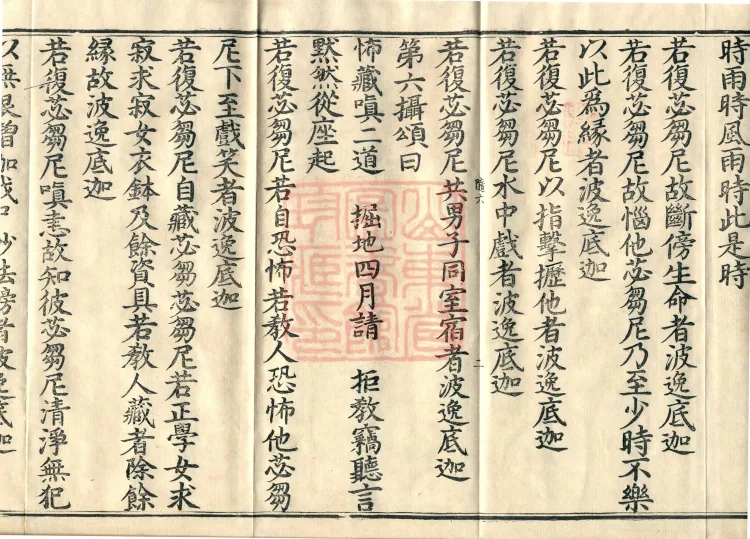 時雨時風雨時此是時
若復苾芻尼故斷傍生命者波逸底迦
若復苾芻尼故惱他苾芻尼乃至少時不樂
以此爲緣者波逸底迦
若復苾芻尼以指擊攊他者波逸底迦
若復苾芻尼水中戲者波逸底迦
若復苾芻尼共男子同室宿者波逸底迦
第六攝頌曰
怖藏嗔二道 掘地四月請 拒教竊聽言
默然從座起
若復苾芻尼若自恐怖若教人恐怖他苾芻
尼下至戲笑者波逸底迦
若復苾芻尼自藏苾芻苾芻尼若正學女求
寂求寂女衣鉢及餘資具若教人藏者除餘
緣故波逸底迦
若復苾芻尼嗔恚故知彼苾芻尼清淨無犯
以無根